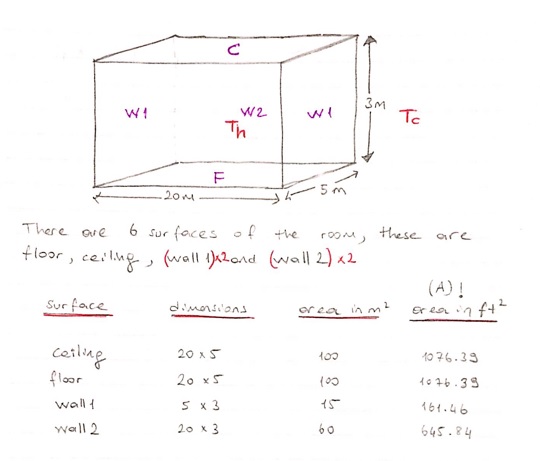 C
W1 W2 W1
Th
3M Tc
F
20M
5 m
There are 6 surfaces of the room, these are
floor, ceiling, (wall 1)x2 and (wall 2) x2
(A)!
surface dimensions area in m² area in ft²
ceiling 20 x 5 100 1076.39
floor 20 x 5 100 1076.39
wall 1 5 x 3 15 161.46
wall 2 20 x 3 60 645.84